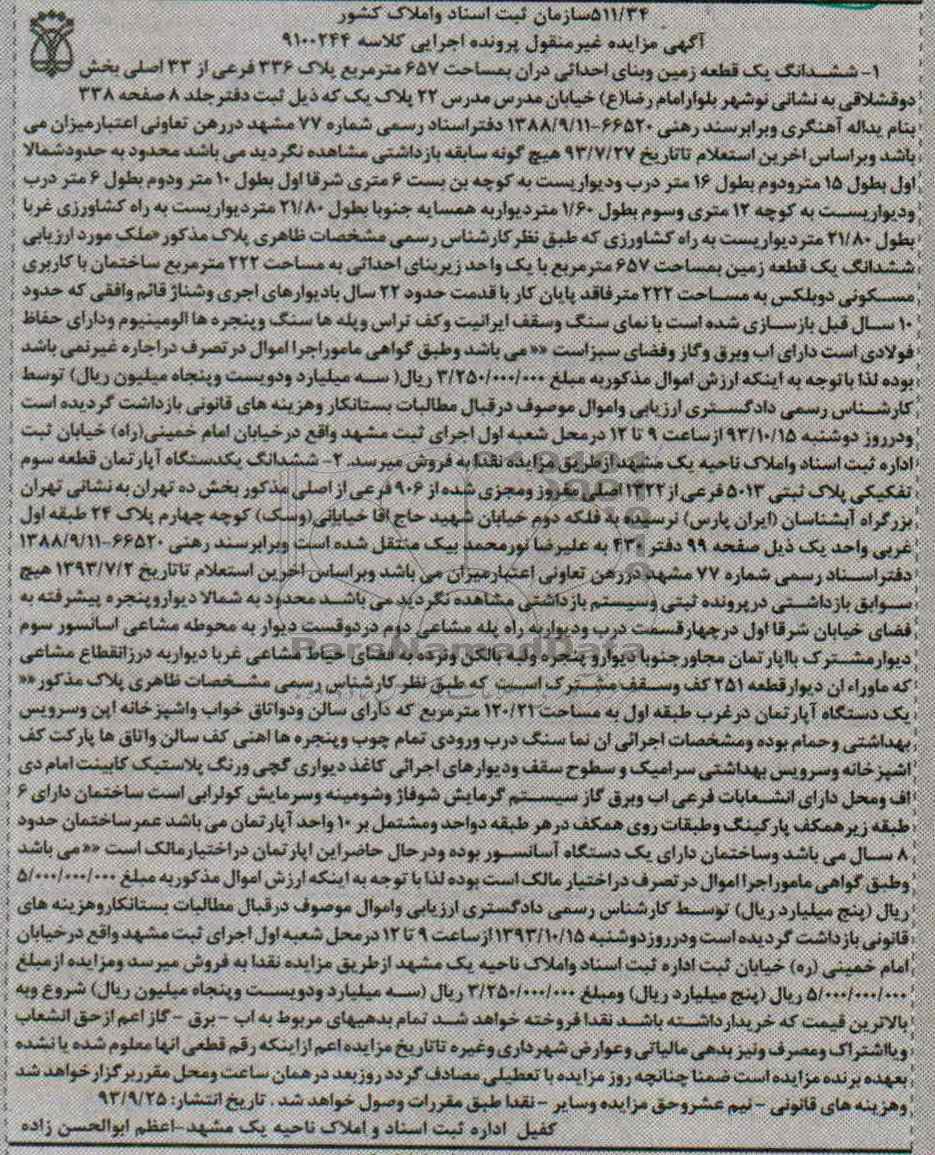 ۵۱۱/۳۴سازمان ثبت اسناد واملاک کشور
آگهی مزایده غیرمنقول پرونده اجرایی کلاسه ۹۱۰۰۲۴۴
۱- ششدانگ یک قطعه زمین وبنای احداثی دران بمساحت ۶۵۷ مترمربع پلاک ۳۳۶ فرعی از ۳۳ اصلی بخش
دوقشلاقی به نشانی نوشهر بلوارامام رضا(ع) خیابان مدرس مدرس ۲۲ پلاک یک که ذیل ثبت دفترجلد ۸ صفحه ۳۳۸
بنام یداله آهنگری وبرابرسند رهنی ۶۶۵۲۰-۱۳۸۸/۹/۱۱ دفتراسناد رسمی شماره ۷۷ مشهد دررهن تعاونی اعتبارمیزان می
باشد وبراساس اخرین استعلام تاتاریخ ۹۳/۷/۲۷ هیچ گونه سابقه بازداشتی مشاهده نگردید می باشد محدود به حدودشمالا
اول بطول ۱۵ مترودوم بطول ۱۶ متر درب ودیواریست به کوچه بن بست ۶ متری شرقا اول بطول ۱۰ متر ودوم بطول ۶ متر درب
ودیواریست به کوچه ۱۲ متری وسوم بطول ۱/۶۰ متردیواربه همسایه جنوبا بطول ۲۱/۸۰ متردیواریست به راه کشاورزی غربا
بطول ۲۱/۸۰ متردیواریست به راه کشاورزی که طبق نظرکارشناس رسمی مشخصات ظاهری پلاک مذکور«ملک مورد ارزیابی
ششدانگ یک قطعه زمین بمساحت ۶۵۷ مترمربع با یک واحد زیربنای احداثی به مساحت ۲۲۲ مترمربع ساختمان با کاربری
مسکونی دوبلکس به مساحت ۲۲۲ مترفاقد پایان کار با قدمت حدود ۲۲ سال بادیوارهای اجری وشناژ قائم وافقی که حدود
۱۰ سال قبل بازسازی شده است با نمای سنگ وسقف ایرانیت وکف تراس وپله ها سنگ وپنجره ها الومینیوم ودارای حفاظ
فولادی است دارای اب وبرق وگاز وفضای سبزاست »» می باشد وطبق گواهی ماموراجرا اموال درتصرف دراجاره غیرنمی باشد
بوده لذا باتوجه به اینکه ارزش اموال مذکوربه مبلغ ۳/۲۵۰/۰۰۰/۰۰۰ ریال( سه میلیارد ودویست وپنجاه میلیون ریال) توسط
کارشناس رسمی دادگستری ارزیابی واموال موصوف درقبال مطالبات بستانکار وهزینه های قانونی بازداشت گردیده است
ودرروز دوشنبه ۹۳/۱۰/۱۵ ازساعت ۹ تا ۱۲ درمحل شعبه اول اجرای ثبت مشهد واقع درخیابان امام خمینی(راه) خیابان ثبت
اداره ثبت اسناد واملاک ناحیه یک مشهد ازطریق مزایده نقدا به فروش میرسد. ۲- ششدانگ یکدستگاه آپارتمان قطعه سوم
تفکیکی پلاک ثبتی ۵۰۱۳ فرعی از ۱۳۲۲ اصلی مفروز ومجزی شده از ۹۰۶ فرعی از اصلی مذکور بخش ده تهران به نشانی تهران
بزرگراه آبشناسان (ایران پارس) نرسیده به فلکه دوم خیابان شهید حاج اقا خیابانی(وسک) کوچه چهارم پلاک ۲۴ طبقه اول
غربی واحد یک ذیل صفحه ۹۹ دفتر ۴۳۰ به علیرضا نورمحمد بیک منتقل شده است وبرابرسند رهنی ۶۶۵۲۰-۱۳۸۸/۹/۱۱
دفتراسناد رسمی شماره ۷۷ مشهد دررهن تعاونی اعتبارمیزان می باشد وبراساس اخرین استعلام تاتاریخ ۱۳۹۳/۷/۲ هیچ
سوابق بازداشتی درپرونده ثبتی وسیستم بازداشتی مشاهده نگردید می باشد محدود به شمالا دیواروپنجره پیشرفته به
فضای خیابان شرقا اول درچهارقسمت درب ودیواربه راه پله مشاعی دوم دردوقست دیوار به محوطه مشاعی اسانسور سوم
دیوارمشترک بااپارتمان مجاورجنوبا دیوارو پنجره ولبه بالکن ونرده به فضای حیاط مشاعی غربا دیواربه درزانقطاع مشاعی
که ماوراء ان دیوارقطعه ۲۵۱ کف وسقف مشترک است که طبق نظر کارشناس رسمی مشخصات ظاهری پلاک مذکور««
یک دستگاه آپارتمان درغرب طبقه اول به مساحت ۱۲۰/۲۱ مترمربع که دارای سالن ودواتاق خواب واشپزخانه اپن وسرویس
بهداشتی وحمام بوده ومشخصات اجرائی ان نما سنگ درب ورودی تمام چوب وپنجره ها اهنی کف سالن واتاق ها پارکت کف
اشپزخانه وسرویس بهداشتی سرامیک و سطوح سقف ودیوارهای اجرائی کاغذ دیواری گچی ورنگ پلاستیک کابینت امام دی
اف ومحل دارای انشعابات فرعی اب وبرق گاز سیستم گرمایش شوفاژ وشومینه وسرمایش کولرابی است ساختمان دارای ۶
طبقه زیرهمکف پارکینگ وطبقات روی همکف درهر طبقه دواحد ومشتمل بر ۱۰ واحد آپارتمان می باشد عمرساختمان حدود
۸ سال می باشد وساختمان دارای یک دستگاه آسانسور بوده ودرحال حاضراین اپارتمان دراختیارمالک است »»می باشد
وطبق گواهی ماموراجرا اموال درتصرف دراختیار مالک است بوده لذا با توجه به اینکه ارزش اموال مذکوربه مبلغ ۵/۰۰۰/۰۰۰/۰۰۰
ریال (پنج میلیارد ریال) توسط کارشناس رسمی دادگستری ارزیابی واموال موصوف درقبال مطالبات بستانکاروهزینه های
قانونی بازداشت گردیده است ودرروزدوشنبه ۱۳۹۳/۱۰/۱۵ ازساعت ۹ تا ۱۲ درمحل شعبه اول اجرای ثبت مشهد واقع درخیابان
امام خمینی (ره) خیابان ثبت اداره ثبت اسناد واملاک ناحیه یک مشهد ازطریق مزایده نقدا به فروش میرسد ومزایده ازمبلغ
۵/۰۰۰/۰۰۰/۰۰۰ ریال (پنج میلیارد ریال) ومبلغ ۳/۲۵۰/۰۰۰/۰۰۰ ریال (سه میلیارد ودویست وپنجاه میلیون ریال) شروع وبه
بالاترین قیمت که خریدارداشته باشد نقدا فروخته خواهد شد تمام بدهیهای مربوط به اب - برق - گاز اعم ازحق انشعاب
ویااشتراک ومصرف ونیز بدهی مالیاتی وعوارض شهرداری وغیره تاتاریخ مزایده اعم ازاینکه رقم قطعی انها معلوم شده یا نشده
بعهده برنده مزایده است ضمنا چنانچه روز مزایده با تعطیلی مصادف گردد روزبعد درهمان ساعت ومحل مقرربرگزارخواهد شد
وهزینه های قانونی - نیم عشروحق مزایده وسایر - نقدا طبق مقررات وصول خواهد شد . تاریخ انتشار: ۹۳/۹/۲۵
کفیل اداره ثبت اسناد و املاک ناحیه یک مشهد-اعظم ابوالحسن زاده
ParsNamadData